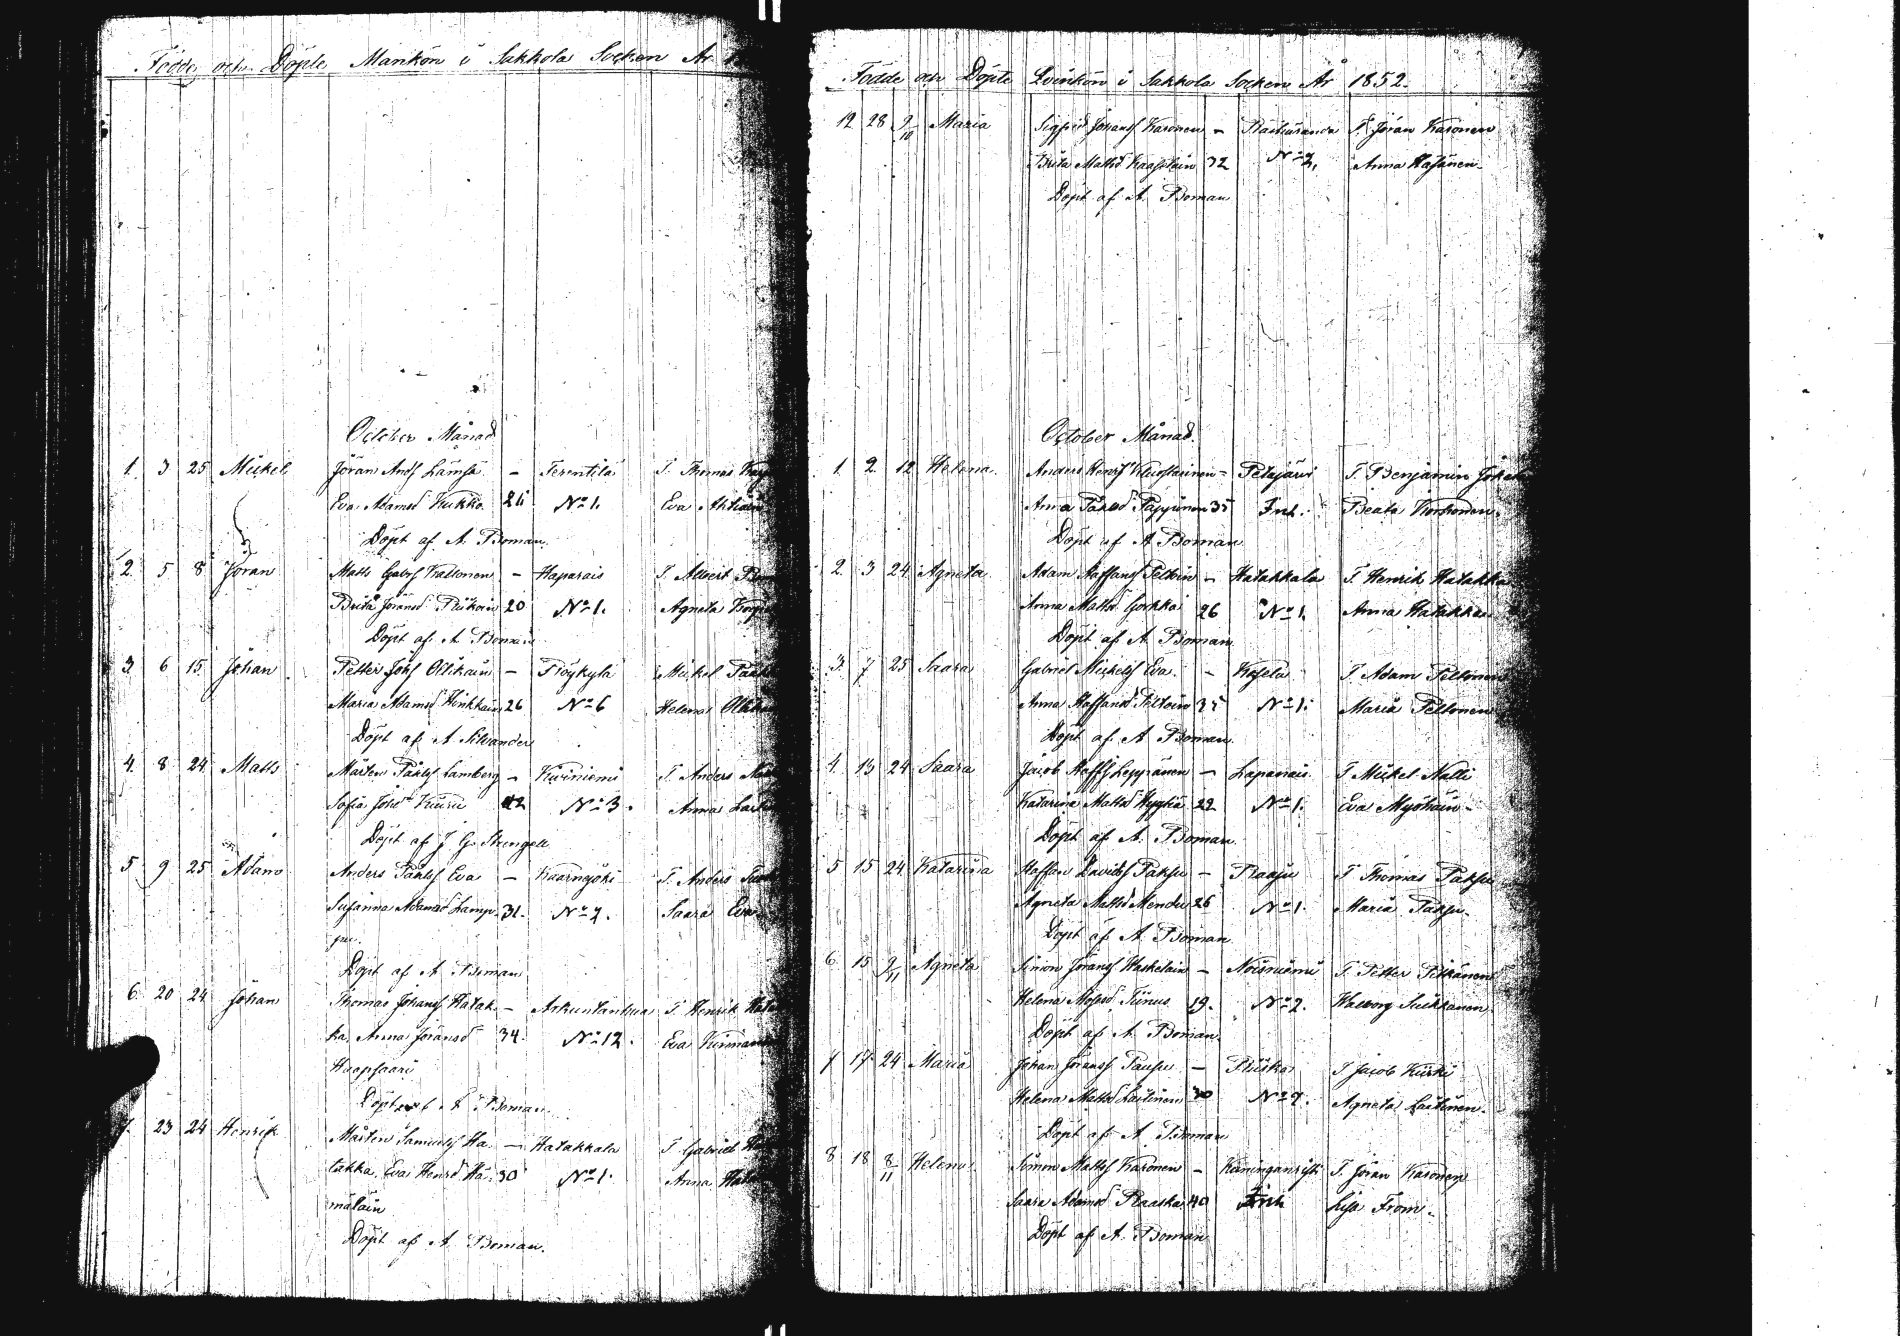 Födde och Döpte Mankön i Sakkola Socken År
October Månad
1. 3 25 Mickel Jöran Ands Lämsä - Terentilä T. Thomas
Eva Adamsd Kukko 26 No 1. Eva Ahtiain
Döpt af A. Boman.
2 5 8 Jöran Matts Gabrs Kallonen - Haparais T. Albert
Brita Jöransd 20 No 1. Agneta
Döpt af A Boman
3 6 15 Johan Petter Johs Ollikain - Pöykylä Mickel
Maria Adamsd Hinkkain 26 No 6 Helena
Döpt af A Silvander
4. 8 24 Matts Mårten Påhls Lamberg - Kiviniemi T. Anders
Sofia Johsd Kuuru 42 No 3. Anna
Döpt af J G Strengell
5 9 25 Adam Anders Påhls Eva - Kaarnajoki T. Anders
Susanna Adamsd Lamp- 31. No 2. Saara Eva
pu.
Döpt af A Boman
6. 20 24 Johan Thomas Johans Hatak- - Arkuntanhua T Henrik
ka, Anna Jöransd 34. No 12. Eva
Haapsaari
Döpt af A Boman.
7. 23 24 Henrik Mårten Samuels Ha- - Hatakkala T Gabriel
takka, Eva Henrsd Hä- 30 No 1. Anna
mäläin
Döpt af A. Boman.
Födde och Döpte Qvinkön i Sakkola Socken År 1852.
12 28 9/10 Maria Sigfrid Johans Karonen - T. Jöran Karonen
Brita Mattsd 32 No 2, Anna Hasanen
Döpt af A. Boman
October Månad.
1. 2. 12 Helena. Anders Henrs - Petäjärvi T. Benjamin
Anna Påhlsd 35 Inh. Beata Korhonen.
Döpt af A Boman
2. 3 24 Agneta Adam Staffans Peltoin - Hatakkala T Henrik Hatakka
Anna Mattsd Gorkka 26 No 1. Anna Hatakka
Döpt af A. Boman
3. 7 25 Saara Gabriel Mickels Eva - Kosela T Adam Peltonen
Anna Staffansd Peltoin 35 No 1. Maria Peltonen
Döpt af A. Boman.
4. 13 24 Saara Jacob Staffs Leppänen - Lapanais T Mickel Nalli
Katarina Mattsd Hyytiä 22 No 1. Eva Myöhäin
Döpt af A. Boman
5 15 24 Katarina Staffan Davids Paksu - Raasu T Thomas Paksu
Agneta Mattsd Mendu 26 No 1. Maria Paksu.
Döpt af A. Boman
6 15 9/11 Agneta Simon Jörans Haskelain - Noisniemi T. Petter Pitkänen
Helena Mosesd Tiinus 19. No 2. Walborg Suikkanen
Döpt af A. Boman.
7 17 24 Maria Johan Jörans Pausu - Riiska T Jacob Kiiski
Helena Mattsd Laitinen 30 No 7. Agneta Laitinen.
Döpt af A. Boman
8 18 8/11 Helena Simon Matts Karonen - T. Jöran Karonen
Saara Adamsd Raaska 40 Inh Lisa From.
Döpt af A. Boman